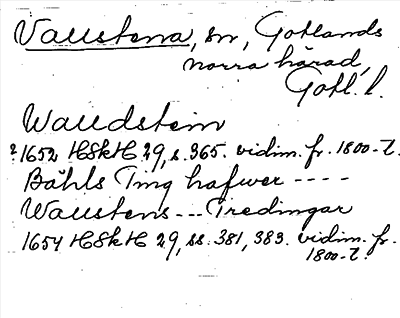 Vallstena, sn, Gotlands
norra härad,
Gotl. l.
Walldstein
? 1652 HSkH 29, s. 365. vidim. fr. 1800-t.
Båhls Ting hafwer ----
Wallstens --- Tredingar
1654 HSkH 29, ss. 381, 383. vidim. fr.
1800-t.